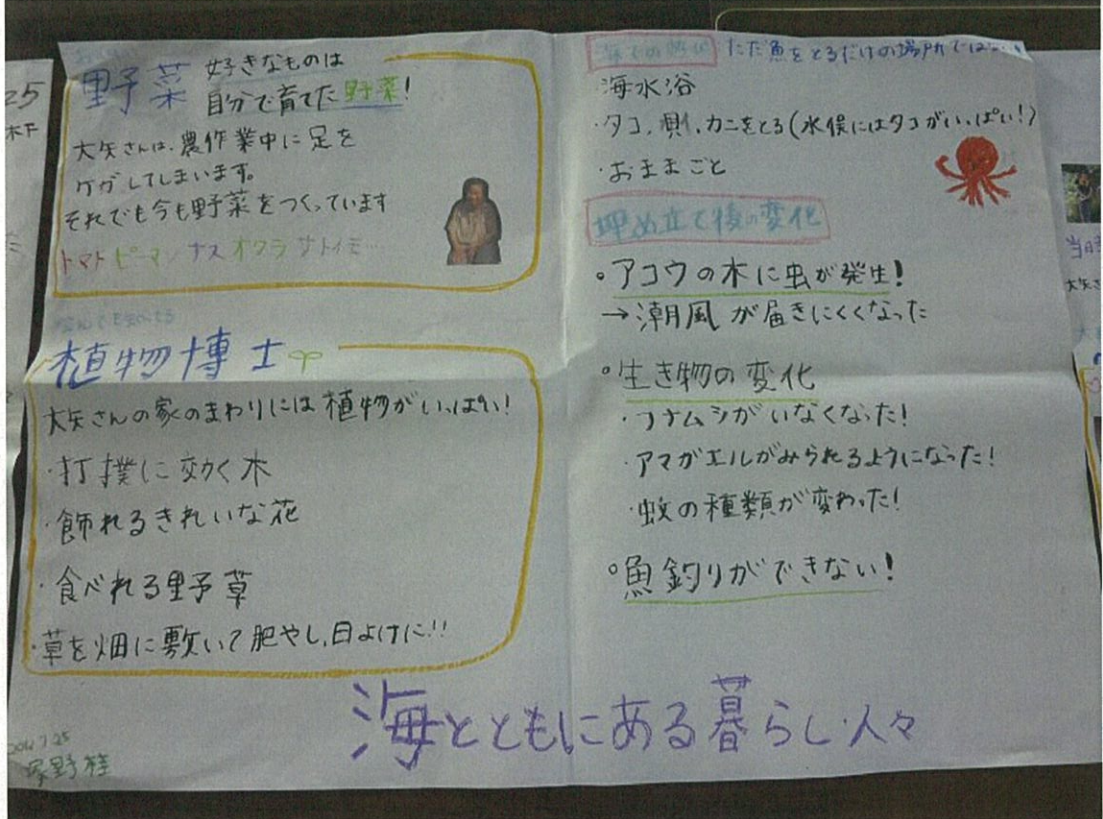 野菜 好きなものは
自分で育てた野菜!
大矢さんは、農作業中に足を
ケガしてしまいます。
それでも今も野菜をつくっています
トマト ピーマン ナス オクラ サトイモ…
植物博士
大矢さんの家のまわりには植物がいっぱい!
・打撲に効く木
・飾れるきれいな花
・食べれる野草
・草を畑に敷いて肥やし、日よけに!!
塚野桂
ただ魚をとるだけの場所ではない
・海水浴
・タコ、カニをとる(水俣にはタコがいっぱい!)
・おままごと
埋め立て後の変化
○アコウの木に虫が発生!
→潮風が届きにくくなった
○生き物の変化
・フナムシがいなくなった!
・アマガエルがみられるようになった!
・蚊の種類が変わった!
○魚釣りができない!
海とともにある暮らし・人々
25
当日
大矢さ